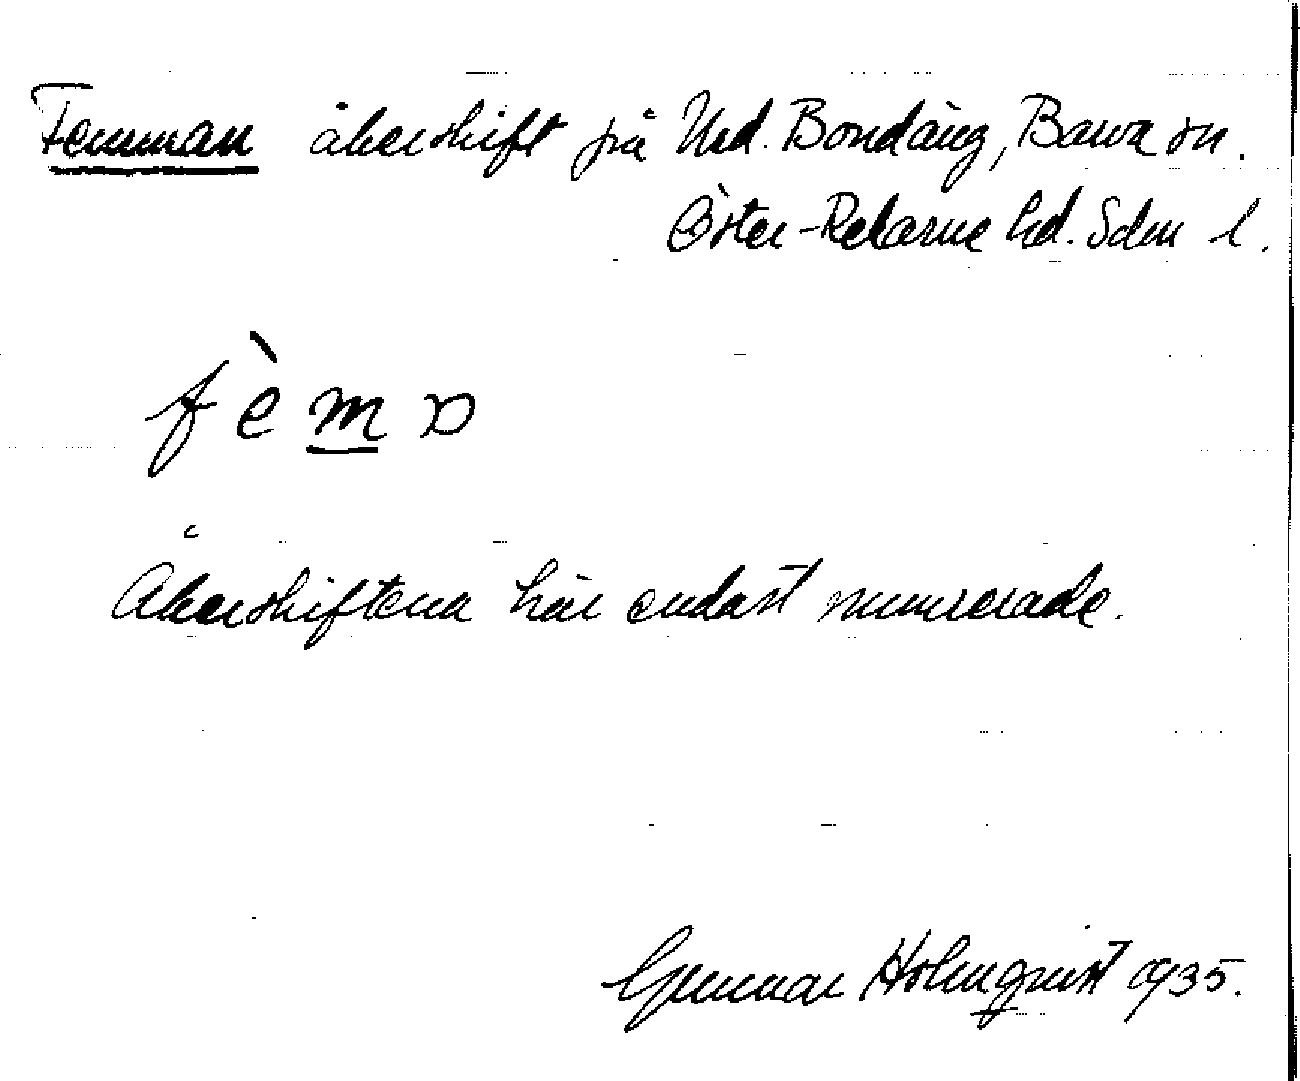 Femman åkerskift på Ned. Bondäng, Barva sn.
Öster-Rekarne hd. Sdm l.
fèmα
Åkerskiftena här endast numrerade.
Gunnar Holmqvist 1935.